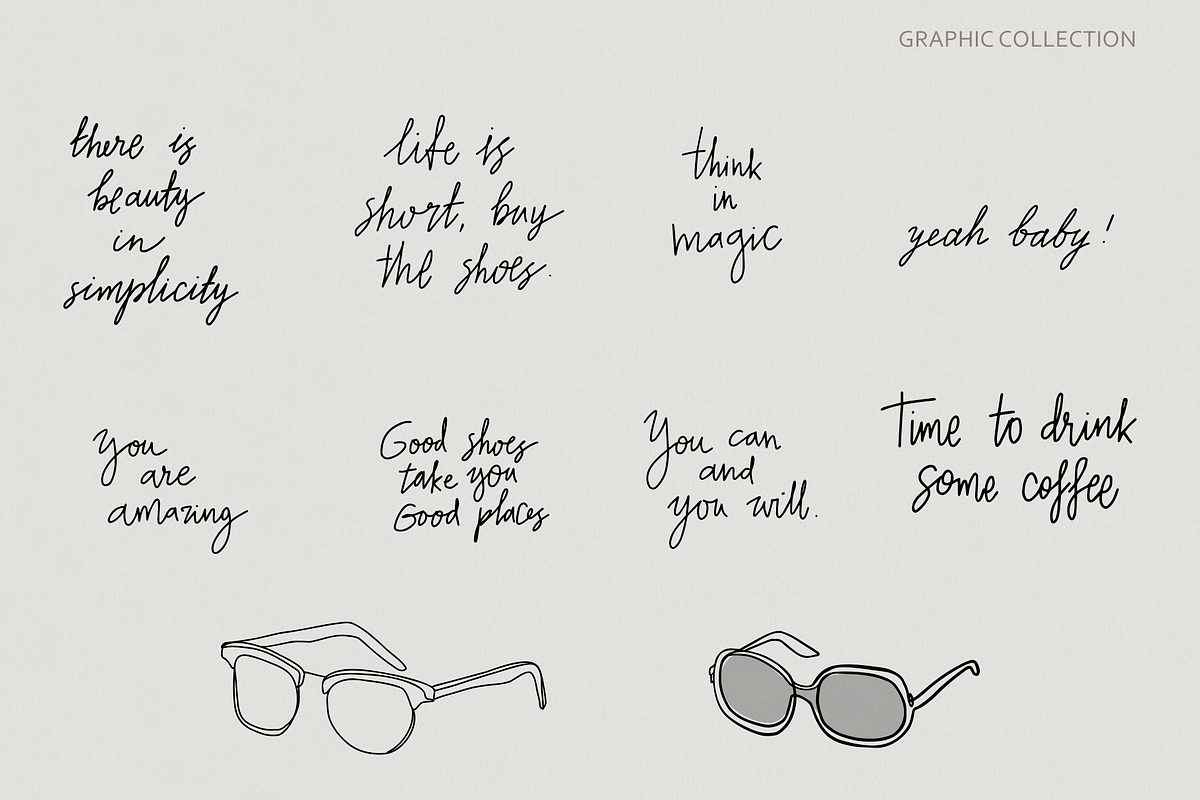 GRAPHIC COLLECTION
there is
beauty
in
simplicity
life is
short, buy
the shoes.
think
in
magic
yeah baby!
you
are
amazing
Good shoes
take you
Good places
You can
and
you will.
Time to drink
some coffee